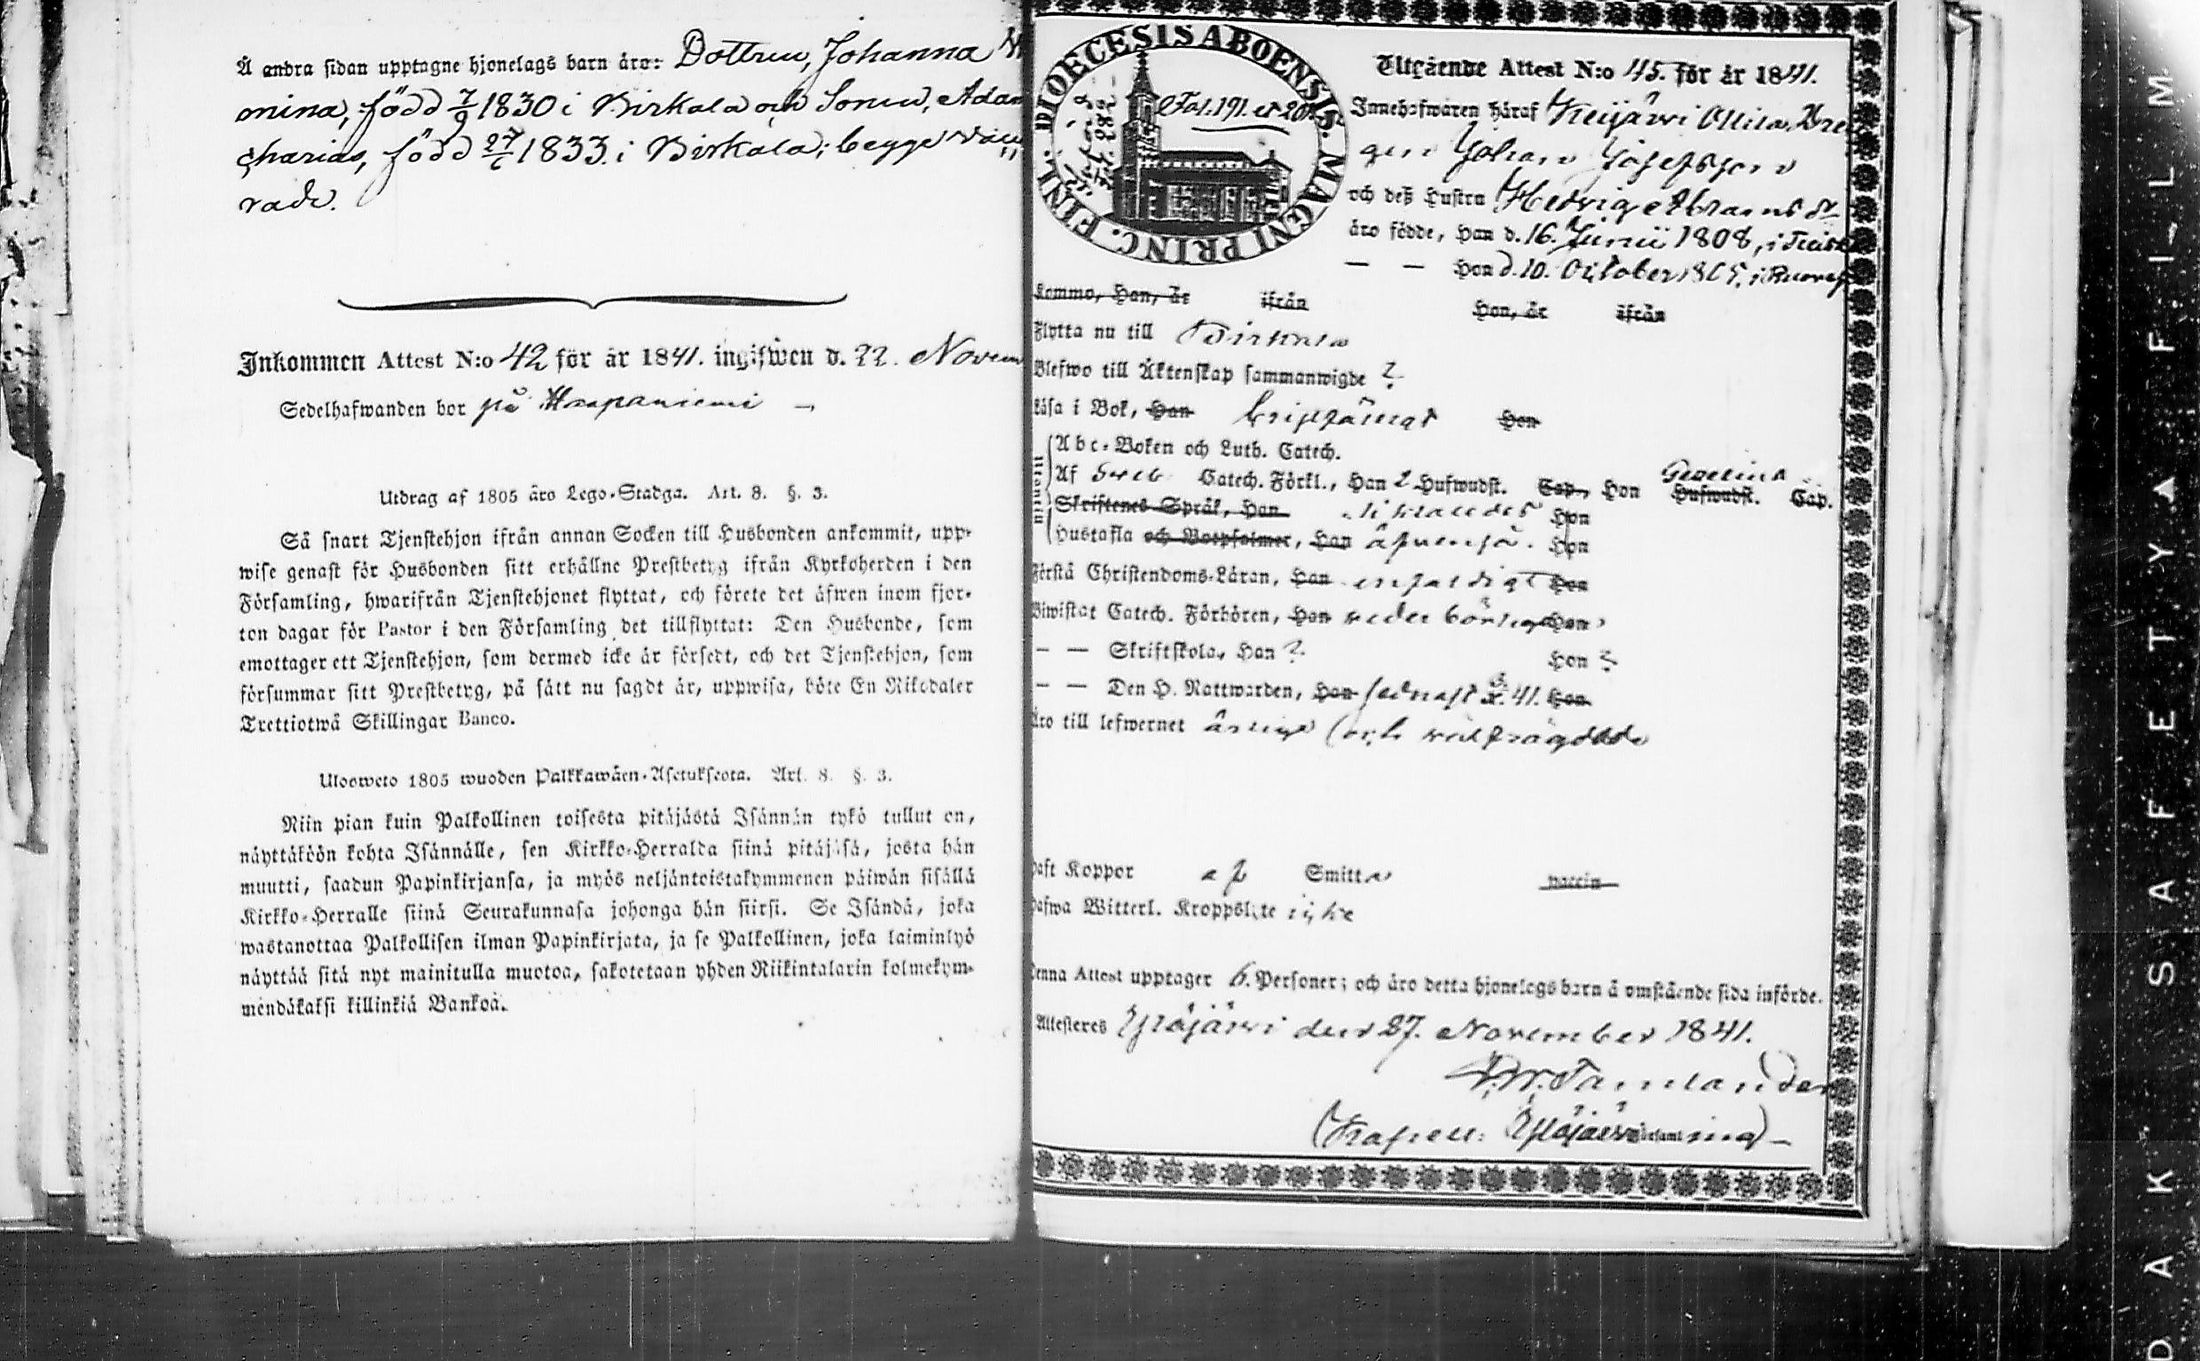 Å andra sidan upptagne hjonelags barn äro: Dottren, Johanna
mina, född 7/9 1830 i Birkala och Sonen, Adam
charias, född 27/6 1833 i Birkala; begge vacci
rade.
Inkommen Attest N:o 42 för år 1841. ingifwen d. 22. Novem
Sedelhafwanden bor på Haapaniemi
Utdrag af 1805 års Lego-Stadga. Art. 8. §. 3.
Så snart Tjenstehjon ifrån annan Socken till Husbonden ankommit, upp-
wise genast för Husbonden sitt erhållne Prestbetyg ifrån Kyrkoherden i den
Församling, hwarifrån Tjenstehjonet flyttat, och förete det äfwen inom fjor-
ton dagar för Pastor i den Församling det tillflyttat: Den Husbonde, som
emottager ett Tjenstehjon, som dermed icke är försedt, och det Tjenstehjon, som
försummar sitt Prestbetyg, på sätt nu sagdt är, uppwisa, böte En Riksdaler
Trettiotwå Skillingar Banco.
Ulosweto 1805 wuoden Palkkawäen-Asetuksesta. Art. 8. §. 3.
Niin pian kuin Palkollinen toisesta pitäjästä Isännän tykö tullut on,
näyttäköön kohta Isännälle, sen Kirkko-Herralda siinä pitäjäsä, josta hän
muutti, saadun Papinkirjansa, ja myös neljäntoistakymmenen päiwän sisällä
Kirkko-Herralle siinä Seurakunnasa johonga hän siirsi. Se Isändä, joka
wastanottaa Palkollisen ilman Papinkirjata, ja se Palkollinen, joka laiminlyö
näyttää sitä nyt mainitulla muotoa, sakotetaan yhden Riikintalarin kolmekym-
mendäkaksi killinkiä Bankoa.
DIOECESIS ABOENSIS. MAGNI PRINC. FINL.
Fol. 191. et 20
Utgående Attest N:o 45. för år 1841.
Innehafwaren häraf Keijärwi Ollila Dre
gen Johan Josefsson
och deß hustru Hedvig Abramsdr
äro födde, Han d. 16. Junii 1808, i
— — Hon d. 10. October 1805, i Ruoves
Komme, Han, är ifrån Hon, är ifrån
Flytta nu till Birkala
Blefwo till Äktenskap sammanwigde ?
Läsa i Bok, Han begripligt Hon
Abc-Boken och Luth. Catech.
Af Sveb. Catech. Förkl., Han 2 Hufwudst. Cap., Hon Hufwudst. Cap.
Skriftenes Språk, Han Hon
Hustafla och Botpsalmer, Han äfvenså. Hon
Förstå Christendoms-Läran, Han enfaldigt Hon
Biwistat Catech. Förhören, Han vederbörligen Hon
— — Skriftskola, Han ? Hon ?
— — Den H. Nattwarden, Han sednast 3/X. 41. Hon
Äro till lefwernet ärlige och välfrägdade
Haft Koppor af Smitta vaccin
Hafwa Witterl. Kroppslyte icke
Denna Attest upptager 6. Personer; och äro detta hjonelags barn å omstående sida införde.
Attesteres Ylöjärwi den 27. November 1841.
Kapell: Ylöjärwi
KODAK SAFETY ▲ FILM